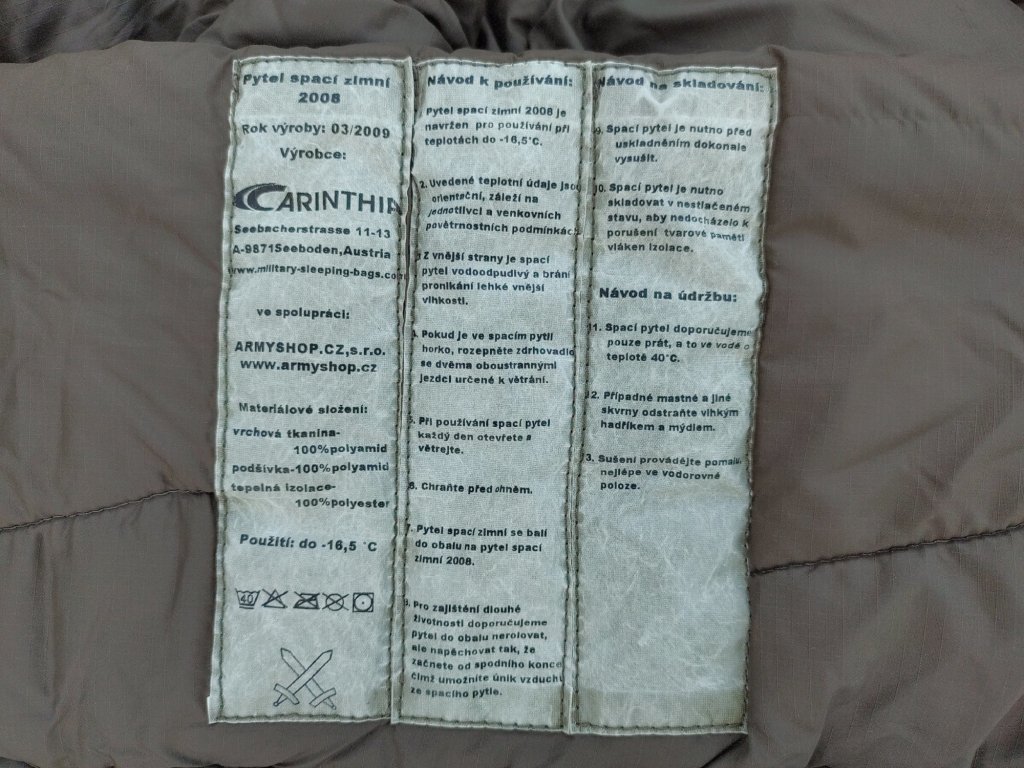 Pytel spací zimní
2008
Rok výroby: 03/2009
Výrobce:
CARINTHIA
Seebacherstrasse 11-13
A-9871Seeboden,Austria
www.military-sleeping-bags.com
ve spolupráci:
ARMYSHOP.CZ,s.r.o.
www.armyshop.cz
Materiálové složení:
vrchová tkanina-
100%polyamid
podšívka-100%polyamid
tepelná izolace-
100%polyester
Použití: do -16,5 °C
40
Návod k používání:
Pytel spací zimní 2008 je
navržen pro používání při
teplotách do -16,5°C.
2. Uvedené teplotní údaje jsou
orientační, záleží na
jednotlivci a venkovních
povětrnostních podmínkách.
Z vnější strany je spací
pytel vodoodpudivý a brání
pronikání lehké vnější
vlhkosti.
4. Pokud je ve spacím pytli
horko, rozepněte zdrhovadlo
se dvěma oboustrannými
jezdci určené k větrání.
5. Při používání spací pytel
každý den otevřete a
větrejte.
6. Chraňte před ohněm.
7. Pytel spací zimní se balí
do obalu na pytel spací
zimní 2008.
8. Pro zajištění dlouhé
životnosti doporučujeme
pytel do obalu nerolovat,
ale napěchovat tak, že
začnete od spodního konce
čímž umožníte únik vzduchu
ze spacího pytle.
Návod na skladování:
9. Spací pytel je nutno před
uskladněním dokonale
vysušit.
10. Spací pytel je nutno
skladovat v nestlačeném
stavu, aby nedocházelo k
porušení tvarové paměti
vláken izolace.
Návod na údržbu:
11. Spací pytel doporučujeme
pouze prát, a to ve vodě o
teplotě 40°C.
12. Případné mastné a jiné
skvrny odstraňte vlhkým
hadříkem a mýdlem.
3. Sušení provádějte pomalu,
nejlépe ve vodorovné
poloze.